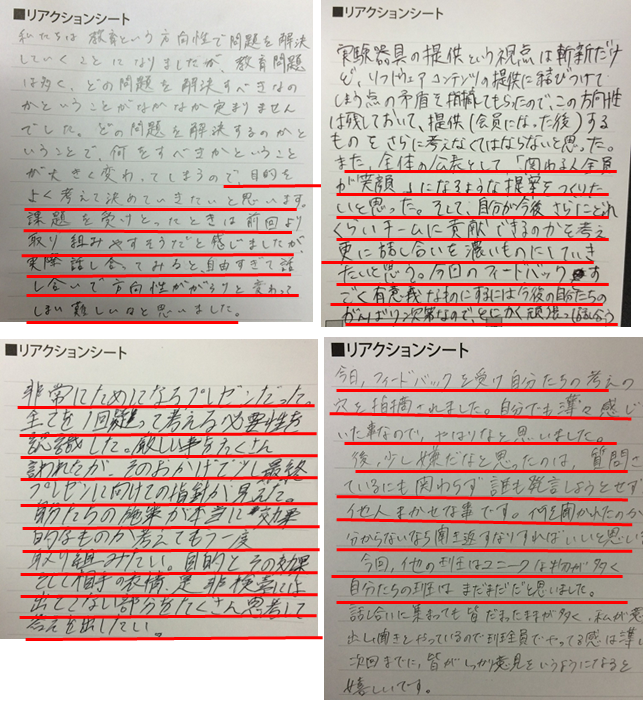 ■リアクションシート
私たちは教育という方向性で問題を解決
していくことになりましたが、教育問題
は多く、どの問題を解決すべきなの
かということがなかなか定まりません
でした。どの問題を解決するのかと
いうことで、何をすべきかということ
が大きく変わってしまうので、目的を
よく考えて決めていきたいと思います。
課題を受けとったときは前回より
取り組みやすそうだと感じましたが、
実際話し合ってみると、自由すぎて話
し合いで方向性ががらりと変わって
しまい難しいなと思いました。
■リアクションシート
実験器具の提供という視点は斬新だけ
ど、ソフトウェアコンテンツの提供に結びつけて
しまう点の矛盾を指摘してもらったので、この方向性
は残しておいて、提供(会員になった後)する
ものをさらに考えなくてはならないと思った。
また、全体の公表として「関わる人全員
が笑顔」になるような提案をつくりた
いと思った。そして、自分が今後さらにどれ
くらいチームに貢献できるのかを考え
更に話し合いを濃いものにしていき
たいと思う。今回のフィードバック す
ごく有意義なものにするには今後の自分たちの
がんばり次第なので、とにかく頑張って話し合う
■リアクションシート
非常にためになるプレゼンだった。
全てを1回疑って考える必要性を
認識した。厳しい事をたくさん
訊われたが、そのおかげで少し最終
プレゼンに向けての指針が見えた。
自分たちの施策が本当に効果
的なものか考えてもう一度
取り組みたい。目的とその効果
そして相手の表情、是非検査では
出てこない部分をたくさん思考して
答えを出したい。
■リアクションシート
今日、フィードバックを受け自分たちの考えの
穴を指摘されました。自分でも薄々感じ
いた事なので、やはりなと思いました。
後、少し嫌だなと思ったのは、質問さ
ているにも関わらず誰も発言しようとせず
他人まかせな事です。何を聞かれたのか
分からないなら聞き返すなりすればいいと思い
今回、他の班はユニークな物が多く
自分たちの班はまだまだだと思いました。
話し合いに集まっても皆だまったままが多く、私が意
出し聞きとやっているので班全員でやってる感は薄い
次回までに、皆がしっかり意見をいうようになると
嬉しいです。